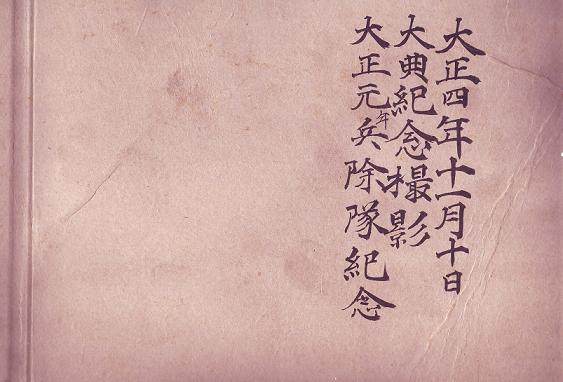 大正四年十一月十日
大典紀念撮影
大正元年兵除隊紀念